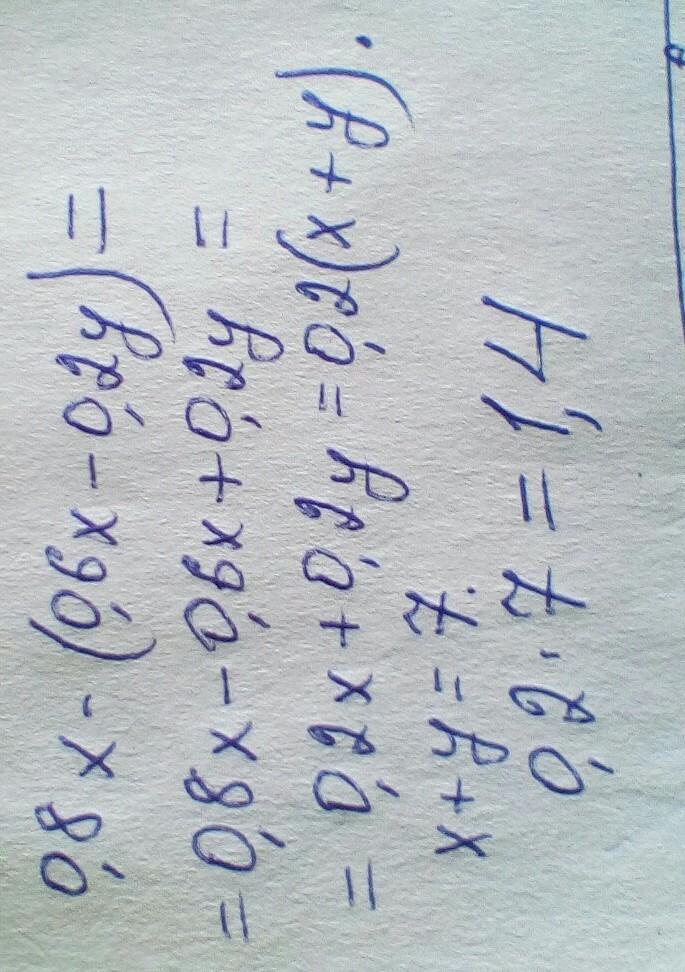 0,8x - (0,6x - 0,2y) =
= 0,8x - 0,6x + 0,2y =
= 0,2x + 0,2y = 0,2(x + y).
x + y = 7.
0,2 · 7 = 1,4